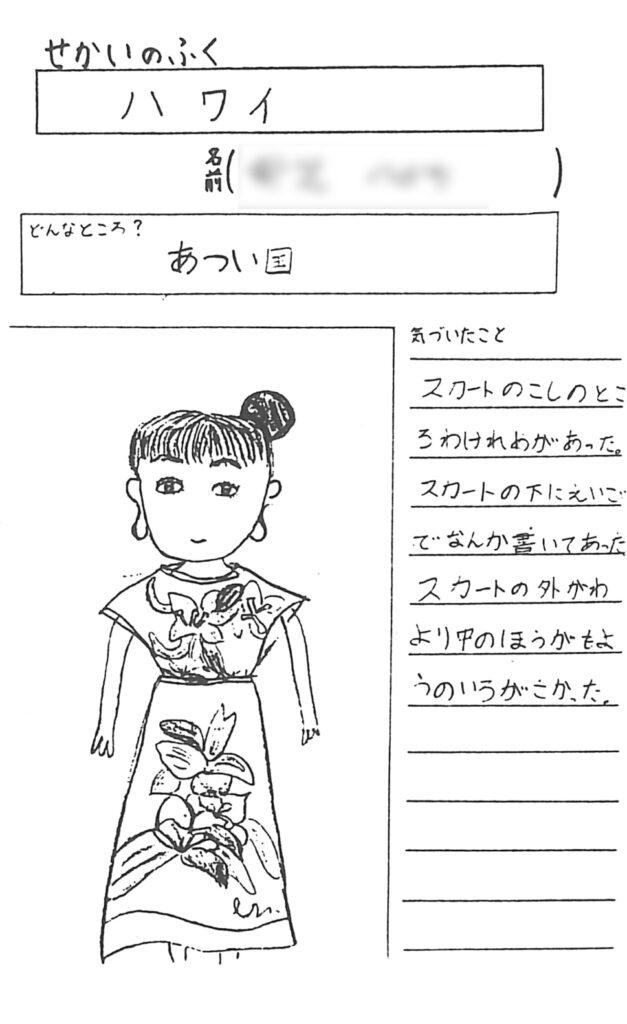 せかいのふく
ハワイ
名前( )
どんなところ?
あつい国
気づいたこと
スカートのこしのとこ
ろわけれめがあった。
スカートの下にえいご
でなんか書いてあった
スカートの外がわ
より中のほうがもよ
うのいろがこかった。